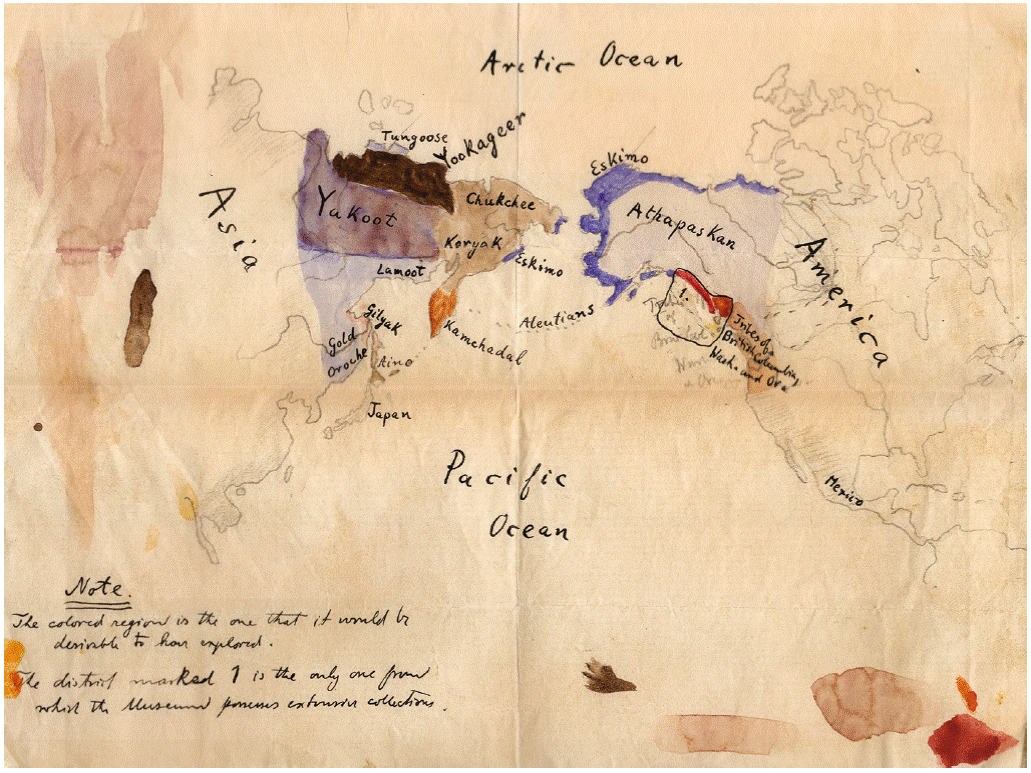 Arctic Ocean
Tungoose
Yookageer
Eskimo
Asia
Yakoot
Chukchee
Athapaskan
Koryak
America
Lamoot
Eskimo
1.
Gilyak
Aleutians
Kamchadal
Gold
Oroche
Aino
Tribes of
British Columbia
Wash. and Ore
Japan
Pacific
Ocean
Mexico
Note.
The colored region is the one that it would be
desirable to have explored.
The district marked 1 is the only one from
which the Museum possesses extensive collections.